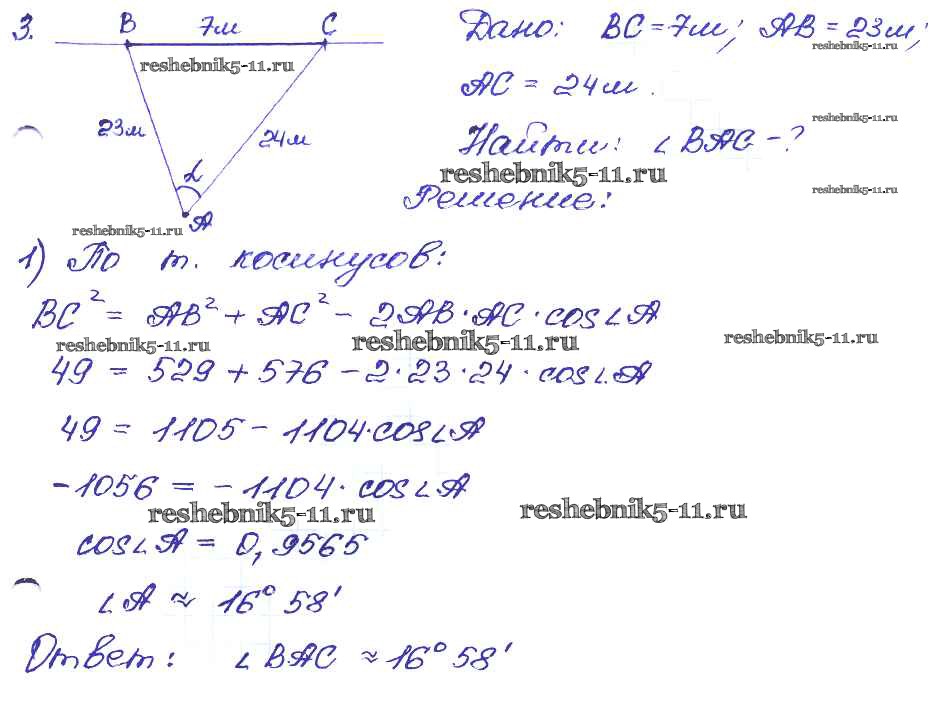 3.
B 7м C
Дано: BC = 7м; AB = 23м;
reshebnik5-11.ru
reshebnik5-11.ru
AC = 24м.
23м
24м
reshebnik5-11.ru
Найти: ∠BAC - ?
reshebnik5-11.ru
reshebnik5-11.ru
Решение:
α
A
reshebnik5-11.ru
1) По т. косинусов:
BC² = AB² + AC² - 2AB·AC·cos∠A
reshebnik5-11.ru
reshebnik5-11.ru
reshebnik5-11.ru
49 = 529 + 576 - 2·23·24·cos∠A
49 = 1105 - 1104·cos∠A
-1056 = -1104·cos∠A
reshebnik5-11.ru
reshebnik5-11.ru
cos∠A = 0,9565
∠A ≈ 16°58'
Ответ: ∠BAC ≈ 16°58'